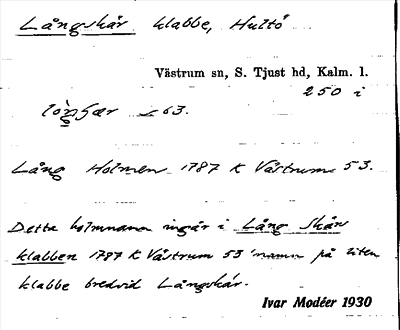 Långskär klabbe, Hultö
Västrum sn, S. Tjust hd, Kalm. l.
250 i
63.
Lång Holmen 1787 K Västrum 53.
Detta holmnamn ingår i Lång Skärs
klabben 1787 K Västrum 53 'namn på liten
klabbe bredvid Långskär.
Ivar Modéer 1930